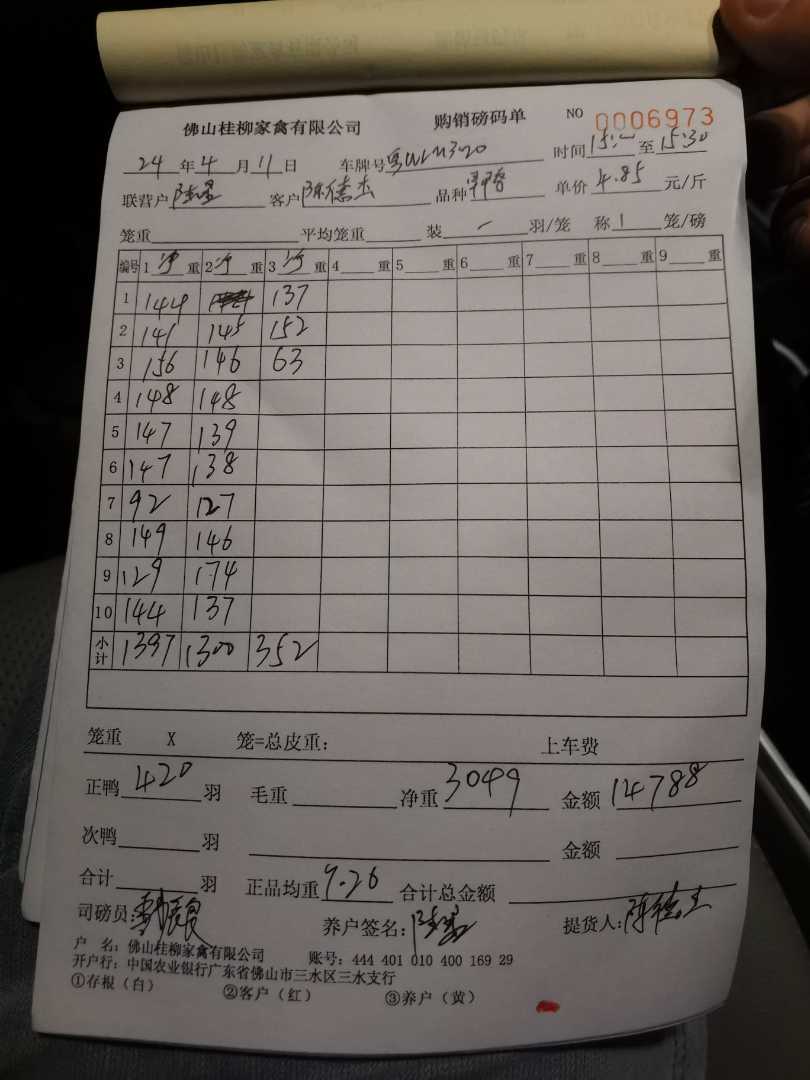 佛山桂柳家禽有限公司 购销磅码单 NO 0006973
24年4月11日 车牌号 时间15:~至15:30
联营户 客户陈德杰 品种 单价4.85元/斤
笼重 平均笼重 装一羽/笼 称1笼/磅
编号 1净重 2净重 3净重 4重 5重 6重 7重 8重 9重
1 144 137
2 141 145 152
3 156 146 63
4 148 148
5 147 139
6 147 138
7 92 127
8 149 146
9 129 174
10 144 137
小计 1397 1300 352
笼重 X 笼=总皮重: 上车费
正鸭420羽 毛重 净重3049 金额14788
次鸭 羽 金额
合计 羽 正品均重7.26 合计总金额
司磅员: 养户签名: 提货人:陈德杰
户 名: 佛山桂柳家禽有限公司 账号: 444 401 010 400 169 29
开户行: 中国农业银行广东省佛山市三水区三水支行
①存根（白） ②客户（红） ③养户（黄）